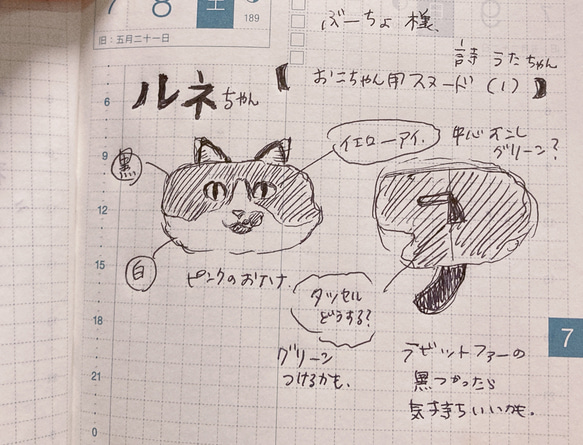 7
8
土
189
旧:五月二十一日
ぶーちょ 様
詩 うたちゃん
【おこちゃん用スヌード(1)】
ルネちゃん
イエローアイ.
中心むこし
グリーン?
黒
白
ピンクのおはな.
タッセル
どうする?
グリーン
つけるかも.
ラビットファーの
黒つかったら
気持ちいいかも。
6
9
12
15
18
21
0
7